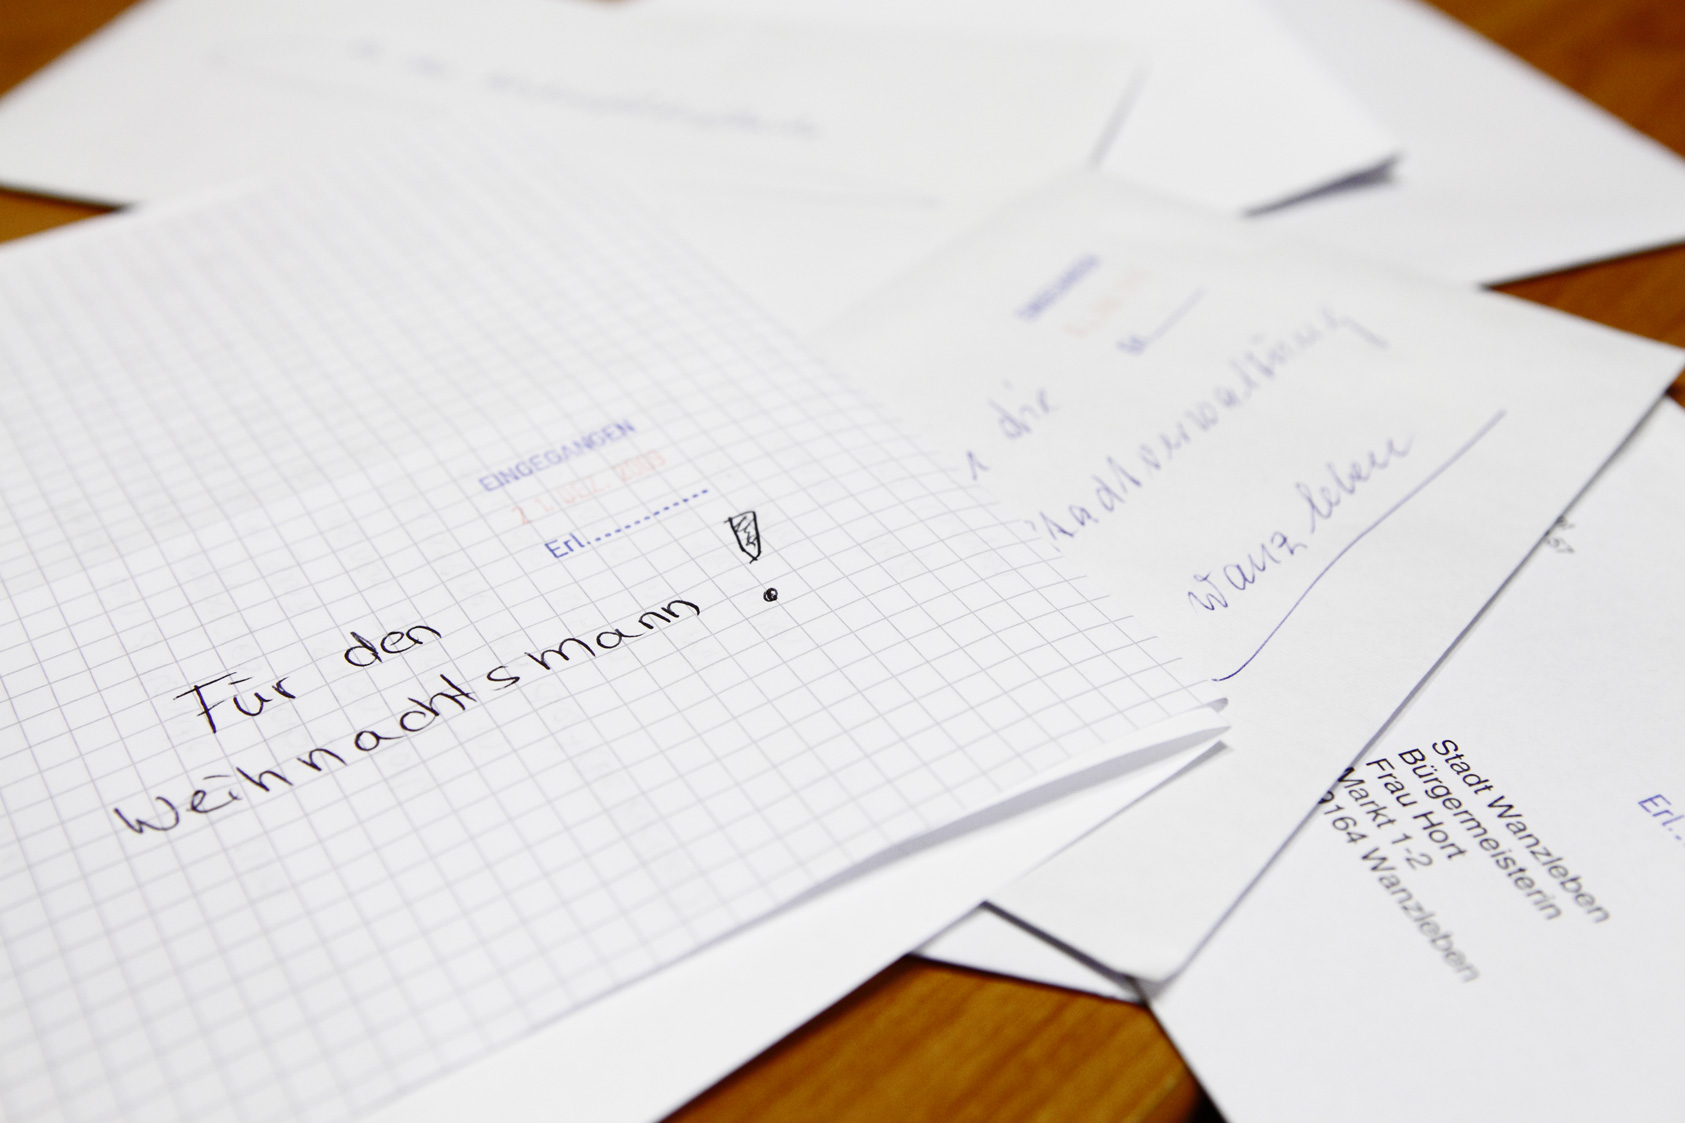 EINGEGANGEN
Erl.
Für den
Weihnachtsmann!
die
Stadtverwaltung
Wanzleben
Stadt Wanzleben
Bürgermeisterin
Frau Hort
Markt 1-2
9164 Wanzleben
Erl.